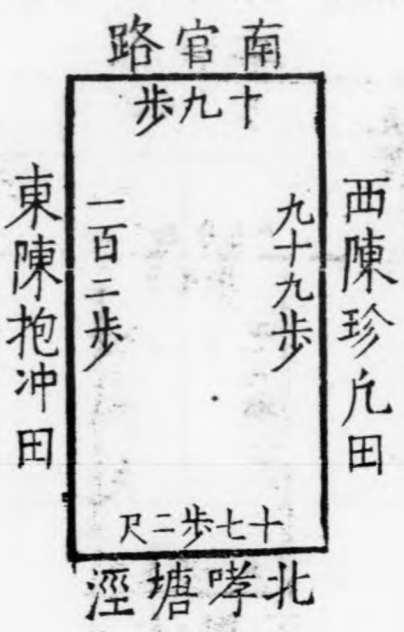 南官路
十九步
西陳珍凢田
九十九步
一百二步
東陳抱冲田
十七步二尺
北哮塘涇